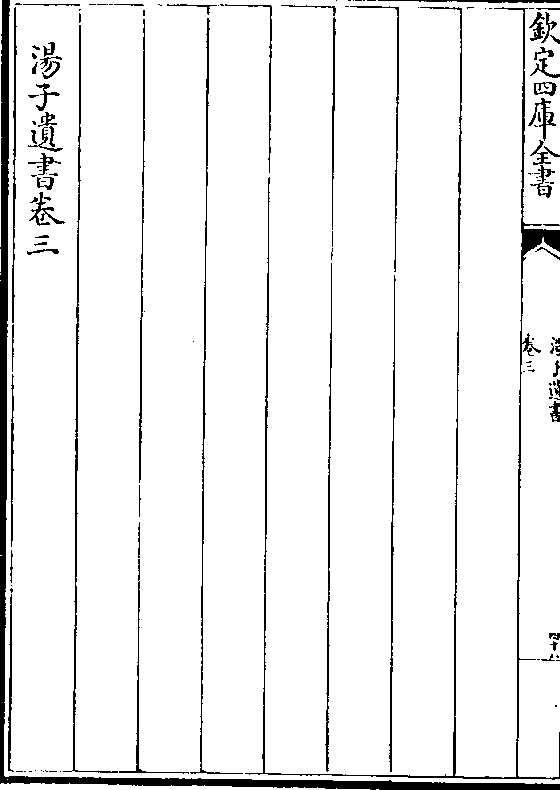 欽定四庫全書
遺書
卷三
湯子遺書卷三